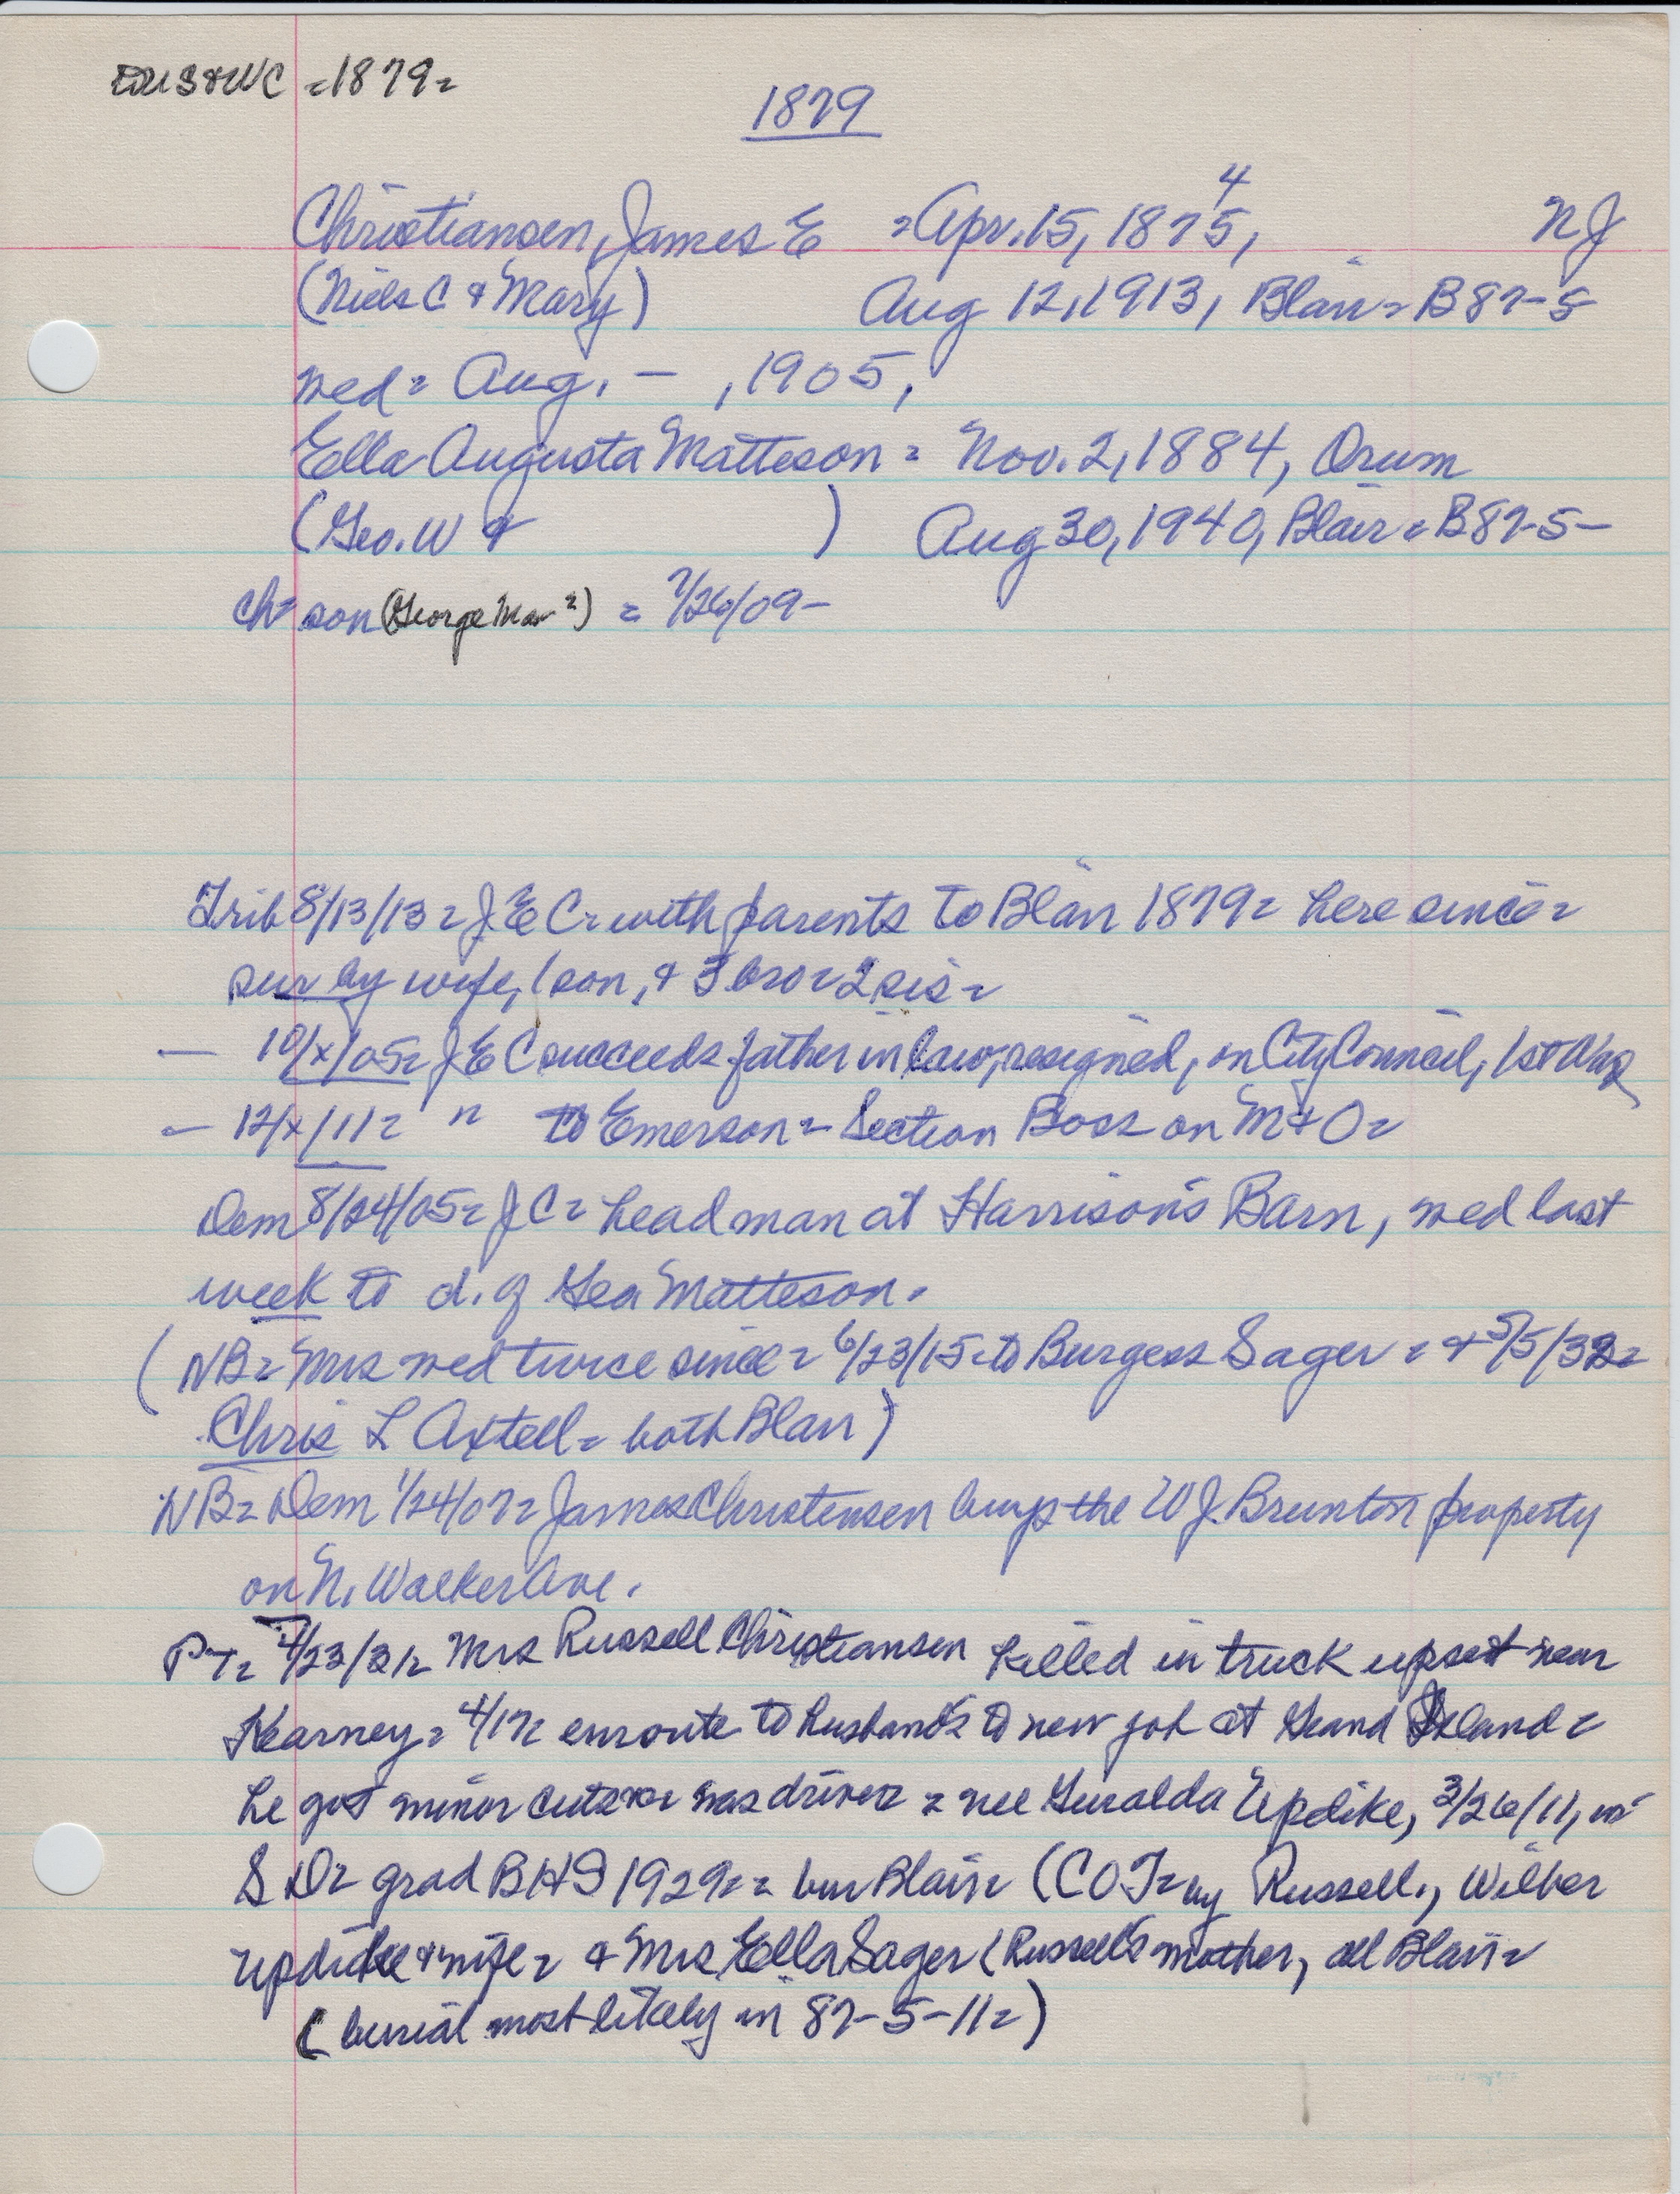 =1879=
1879
4
Christiansen, James E = Apr. 15, 1875, NJ
(Niels C & Mary) Aug 12, 1913, Blair = B 87-5
wed = Aug. - , 1905,
Ella Augusta Matteson = Nov. 2, 1884, Orum
(Geo. W & ) Aug 30, 1940, Blair = B87-5-
ch = son (George ?) = 7/26/09-
Trib 8/13/13 = J E C = with parents to Blair 1879 = here since =
sur by wife, 1 son, & 3 bro = 2 sis =
- 10/x/05 = J E C succeeds father in law, resigned, on City Council, 1st
- 12/x/11 = " to Emerson = Section Boss on M & O =
Dem 8/24/05 = J C = head man at Harrison's Barn, wed last
week to d. of Geo Matteson.
(NB = Mrs wed twice since = 6/23/15 = to Burgess Sager = & 5/5/32 =
Chris L Axtell = both Blair)
NB = Dem 1/24/07 = James Christensen buys the W J. Brunton property
on N. Walker Ave.
PT = 4/23/31 = Mrs Russell Christiansen killed in truck upset near
Kearney = 4/17 = enroute to husband's to new job at Grand Island =
he got minor cuts = was driver = nee Geralda Updike, 3/26/11, in
S D = grad BHS 1929 = = bur Blair = (COT = by Russell, Wilber
Updike & wife = & Mrs Ella Sager (Russell's mother, all Blair =
(burial most likely in 87-5-11 =)